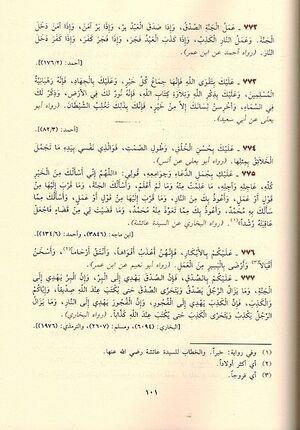 ٧٧٢ ـ عَمَلُ الْجَنَّةِ الصِّدْقُ، وَإِذَا صَدَقَ الْعَبْدُ بَرَّ، وَإِذَا بَرَّ آمَنَ، وَإِذَا آمَنَ دَخَلَ
الْجَنَّةَ. وَعَمَلُ النَّارِ الْكَذِبُ، وَإِذَا كَذَبَ الْعَبْدُ فَجَرَ، وَإِذَا فَجَرَ كَفَرَ، وَإِذَا كَفَرَ دَخَلَ
النَّارَ. (رواه أحمد عن ابن عمرو).
[أحمد: (١٧٦/٢)]
٧٧٣ ـ عَلَيْكَ بِتَقْوَى اللَّهِ فَإِنَّهَا جِمَاعُ كُلِّ خَيْرٍ، وَعَلَيْكَ بِالْجِهَادِ، فَإِنَّهُ رَهْبَانِيَّةُ
الْمُسْلِمِينَ، وَعَلَيْكَ بِذِكْرِ اللَّهِ وَتِلَاوَةِ كِتَابِ اللَّهِ، فَإِنَّهُ نُورٌ لَكَ فِي الْأَرْضِ، وَذِكْرٌ لَكَ
فِي السَّمَاءِ، وَاخْزُنْ لِسَانَكَ إِلَّا مِنْ خَيْرٍ، فَإِنَّكَ بِذَلِكَ تَغْلِبُ الشَّيْطَانَ. (رواه أبو
يعلى عن أبي سعيد).
[أحمد: (٨٢/٣)]
٧٧٤ ـ عَلَيْكَ بِحُسْنِ الْخُلُقِ، وَطُولِ الصَّمْتِ، فَوَالَّذِي نَفْسِي بِيَدِهِ مَا تَجَمَّلَ
الْخَلَائِقُ بِمِثْلِهَا. (رواه أبو يعلى عن أنس).
٧٧٥ ـ عَلَيْكِ بِجُمَلِ الدُّعَاءِ وَجَوَامِعِهِ، قُولِي: «اللَّهُمَّ إِنِّي أَسْأَلُكَ مِنَ الْخَيْرِ
كُلِّهِ، عَاجِلِهِ وَآجِلِهِ، مَا عَلِمْتُ مِنْهُ وَمَا لَمْ أَعْلَمْ، وَأَسْأَلُكَ الْجَنَّةَ، وَمَا قَرَّبَ إِلَيْهَا مِنْ
قَوْلٍ أَوْ عَمَلٍ، وَأَعُوذُ بِكَ مِنَ النَّارِ، وَمَا قَرَّبَ إِلَيْهَا مِنْ قَوْلٍ أَوْ عَمَلٍ، وَأَسْأَلُكَ مِمَّا
سَأَلَكَ بِهِ مُحَمَّدٌ، وَأَعُوذُ بِكَ مِمَّا تَعَوَّذَ مِنْهُ مُحَمَّدٌ، وَمَا قَضَيْتَ لِي مِنْ قَضَاءٍ فَاجْعَلْ
عَاقِبَتَهُ رُشْداً» (رواه البخاري عن السيدة عائشة).
[ابن ماجه: (٣٨٤٦)، وأحمد: (١٣٤/٦)]
٧٧٦ ـ عَلَيْكُمْ بِالْأَبْكَارِ، فَإِنَّهُنَّ أَعْذَبُ أَفْوَاهاً، وَأَنْتَقُ أَرْحَاماً، وَأَسْخَنُ
أَقْبَالاً، وَأَرْضَى بِالْيَسِيرِ مِنَ الْعَمَلِ. (رواه أبو نعيم عن ابن عمر).
٧٧٧ ـ عَلَيْكُمْ بِالصِّدْقِ، فَإِنَّ الصِّدْقَ يَهْدِي إِلَى الْبِرِّ، وَإِنَّ الْبِرَّ يَهْدِي إِلَى
الْجَنَّةِ، وَمَا يَزَالُ الرَّجُلُ يَصْدُقُ وَيَتَحَرَّى الصِّدْقَ حَتَّى يُكْتَبَ عِنْدَ اللَّهِ صِدِّيقاً، وَإِيَّاكُمْ
وَالْكَذِبَ، فَإِنَّ الْكَذِبَ يَهْدِي إِلَى الْفُجُورِ، وَإِنَّ الْفُجُورَ يَهْدِي إِلَى النَّارِ، وَمَا يَزَالُ
الرَّجُلُ يَكْذِبُ وَيَتَحَرَّى الْكَذِبَ حَتَّى يُكْتَبَ عِنْدَ اللَّهِ كَذَّاباً. (رواه البخاري).
[البخاري: (٦٠٩٤)، ومسلم: (٢٦٠٧)، والترمذي: (١٩٧٦)]
(١) وفي رواية: خيراً. والخطاب للسيدة عائشة رضي الله عنها.
(٢) أي أكثر أولاداً.
(٣) أي فروجاً.
١٠١